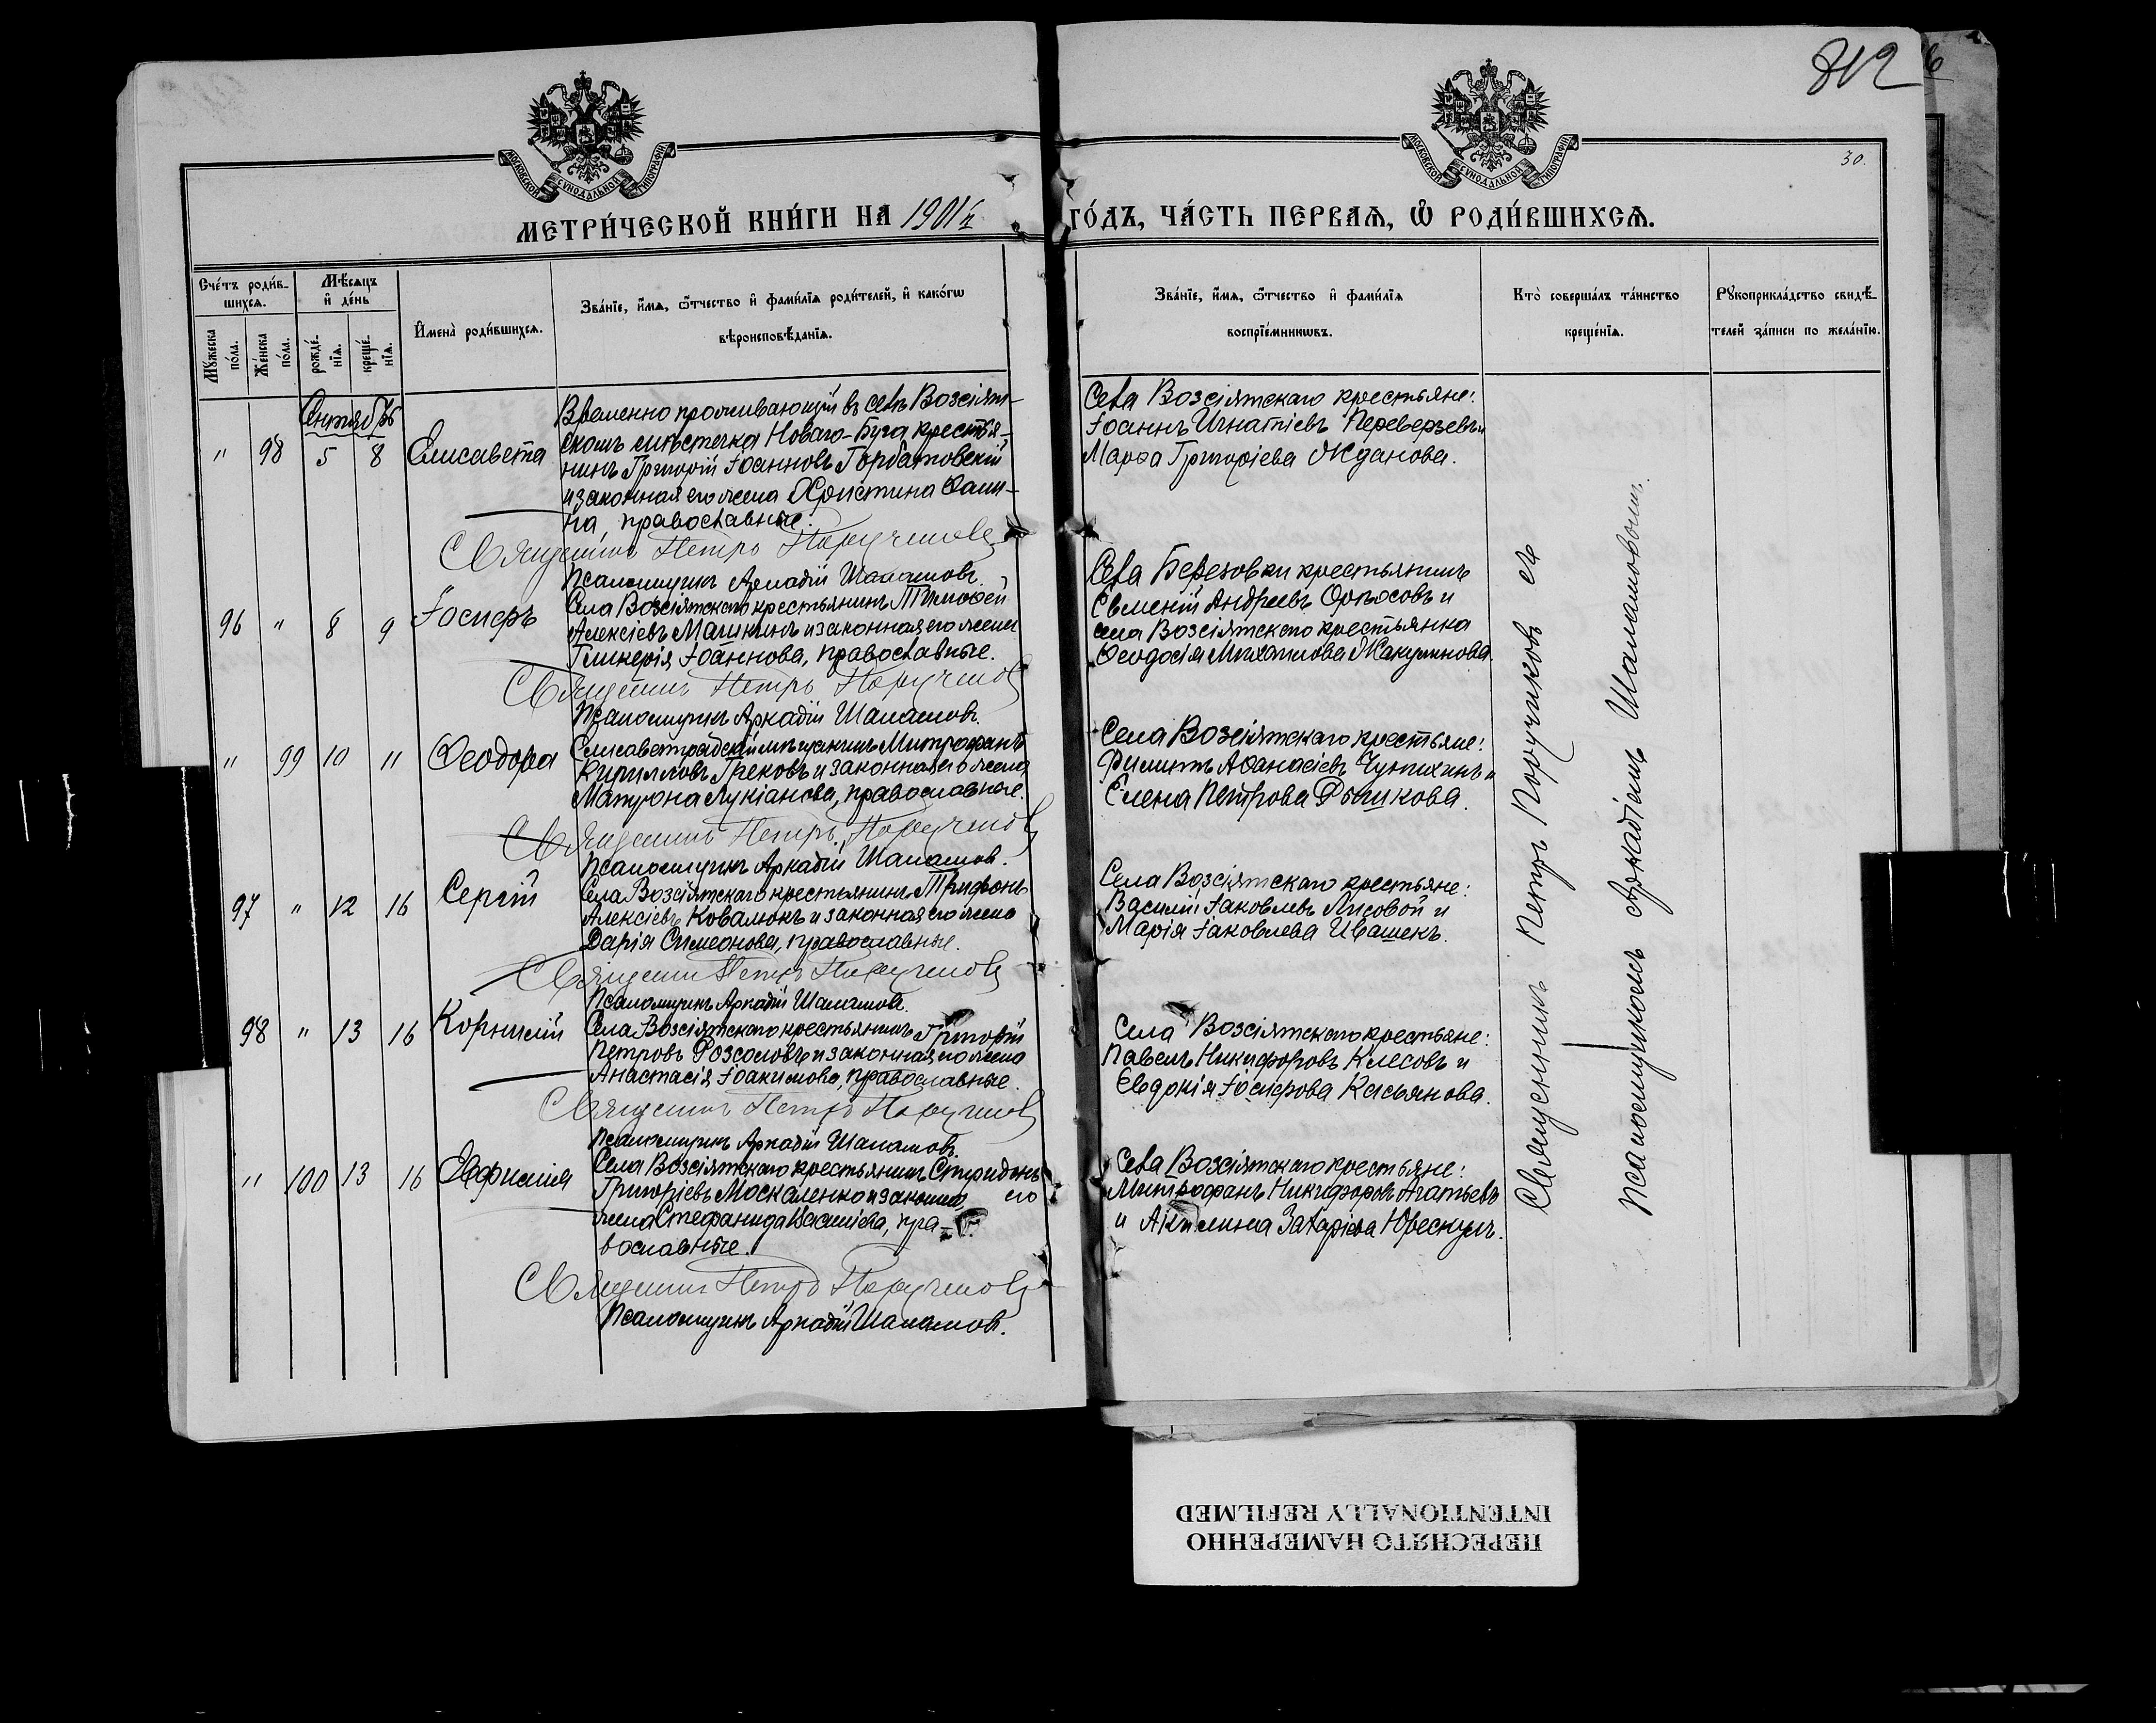 812
30.
МОСКОВСКОЙ СѴНОДАЛЬНОЙ ТИПОГРАФІИ
МОСКОВСКОЙ СѴНОДАЛЬНОЙ ТИПОГРАФІИ
МЕТРИ́ЧЕСКОЙ КНИ́ГИ НА 1901й ГО́ДЪ, ЧА́СТЬ ПЕРВАѦ, Ѿ РОДИ́ВШИХСѦ.
Сче́тъ роди́в-
шихсѧ.
Мꙋ́жеска по́ла.
Же́нска по́ла.
Мѣ́сѧцъ
и҆ де́нь
рожде́-
нїѧ.
креще́-
нїѧ.
И҆мена̀ роди́вшихсѧ.
Зва́нїе, и҆́мѧ, ѻ҆́тчество и҆ фами́лїѧ роди́телей, и҆ како́гѡ
вѣроисповѣ́данїѧ.
Зва́нїе, и҆́мѧ, ѻ҆́тчество и҆ фами́лїѧ
воспрїе́мникѡвъ.
Кто̀ соверша́лъ та́инство
креще́нїѧ.
Рꙋкоприкла́дство свидѣ́-
телей за́писи по жела́нїю.
Сентябрь
" 98 5 8 Елисавета
Временно проживающій въ селѣ Возсіят-
скомъ мѣстечка Новаго-Буга крестья-
нинъ Григорій Іоанновъ Горбатовскій
и законная его жена Христина
православные.
Священникъ Петръ Поручиковъ
Псаломщикъ Аркадій Шаламовъ.
Села Возсіятскаго крестьяне:
Іоаннъ Игнатіевъ Переверзевъ и
Марѳа Григоріева Жданова.
96 " 8 9 Іосифъ
Села Возсіятскаго крестьянинъ Тимоѳей
Алексіевъ Машкинъ и законная его жена
Гликерія Іоаннова, православные.
Священникъ Петръ Поручиковъ
Псаломщикъ Аркадій Шаламовъ.
Села Березовки крестьянинъ
Евменій Андреевъ и
села Возсіятскаго крестьянка
Ѳеодосія Михаилова
" 99 10 11 Ѳеодора
Елисаветградскій мѣщанинъ Митрофанъ
Кирилловъ Грековъ и законная его жена
Матрона Лукіанова, православные.
Священникъ Петръ Поручиковъ
Псаломщикъ Аркадій Шаламовъ.
Села Возсіятскаго крестьяне:
Филиппъ Аѳанасіевъ Чупихинъ и
Елена Петрова
97 " 12 16 Сергій
Села Возсіятскаго крестьянинъ Трифонъ
Алексіевъ Ковалюкъ и законная его жена
Дарія Симеонова, православные.
Священникъ Петръ Поручиковъ
Псаломщикъ Аркадій Шаламовъ.
Села Возсіятскаго крестьяне:
Василій Іаковлевъ Лисовой и
Марія Іаковлева Ивашекъ.
98 " 13 16 Корнилій
Села Возсіятскаго крестьянинъ Григорій
Петровъ Розсоловъ и законная его жена
Анастасія Іоакимова, православные.
Священникъ Петръ Поручиковъ
Псаломщикъ Аркадій Шаламовъ.
Села Возсіятскаго крестьяне:
Павелъ Никифоровъ Клесовъ и
Евдокія Іосифова Касьянова.
" 100 13 16 Евфимія
Села Возсіятскаго крестьянинъ Спиридонъ
Григоріевъ Москаленко и законная его
жена Стефанида Василіева, пра-
вославные.
Священникъ Петръ Поручиковъ
Псаломщикъ Аркадій Шаламовъ.
Села Возсіятскаго крестьяне:
Митрофанъ Никифоровъ Агатьевъ
и Акилина Захаріева
Священникъ Петръ Поручиковъ съ
псаломщикомъ Аркадіемъ Шаламовымъ.
ПЕРЕСНЯТО НАМЕРЕННО
INTENTIONALLY REFILMED